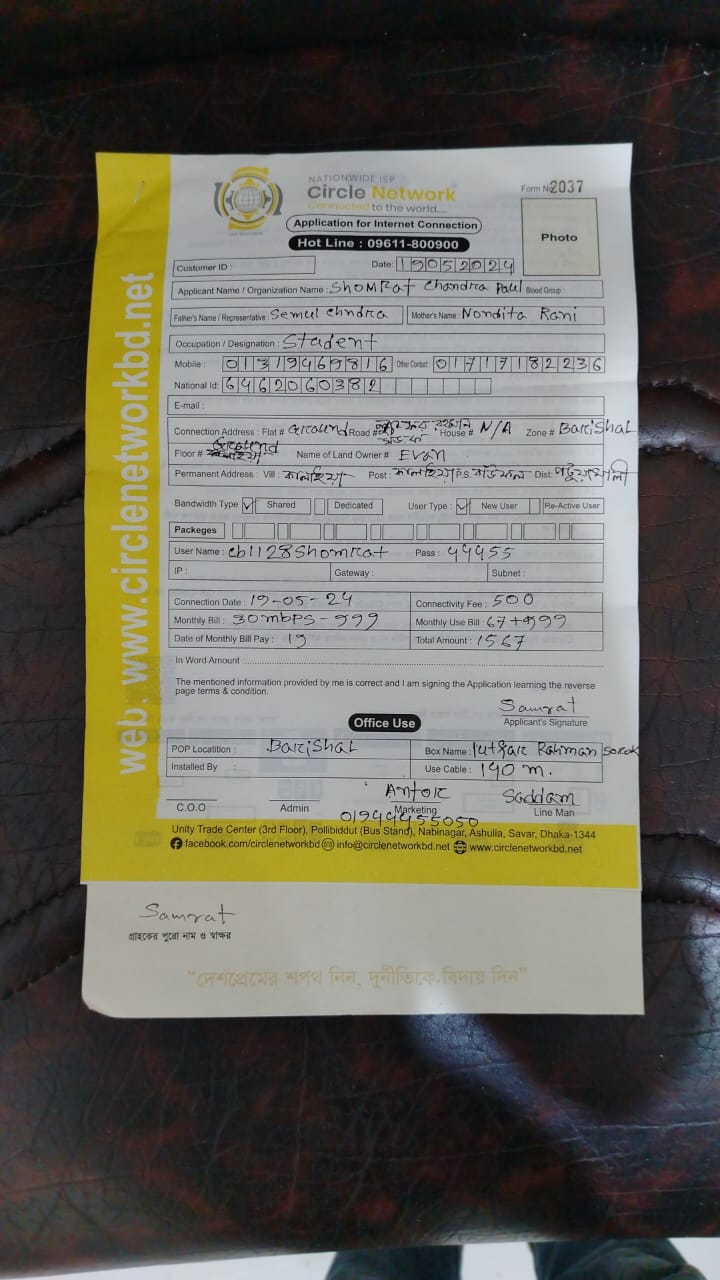 NATIONWIDE ISP
Circle Network
Connected to the world....
Form No 2037
Application for Internet Connection
Hot Line : 09611-800900
Photo
Customer ID :
Date: 19052024
Applicant Name / Organization Name : Shomrat Chandra Paul Blood Group :
Father's Name / Representative : Semul Chndra Mother's Name : Nondita Rani
Occupation / Designation : Student
Mobile : 01319469816 Other Contact : 01717182236
National Id: 6462060382
E-mail :
Connection Address : Flat # Ground Road # রহমান সড়ক House # N/A Zone # Barishal
Floor # Ground Name of Land Owner # Evan
Permanent Address : Vill : কালাইয়া Post : কালাইয়া P.S: বাউফল Dist: পটুয়াখালী
Bandwidth Type Shared Dedicated User Type : New User Re-Active User
Packeges
User Name : cb1128Shomrat Pass : 44455
IP : Gateway : Subnet :
Connection Date : 19-05-24 Connectivity Fee : 500
Monthly Bill : 30mbps-999 Monthly Use Bill : 67+999
Date of Monthly Bill Pay : 19 Total Amount : 1567
In Word Amount
The mentioned information provided by me is correct and I am signing the Application learning the reverse
page terms & condition.
Samrat
Applicant's Signature
Office Use
POP Locatition : Barishal Box Name : Rahman Sorok
Installed By : Use Cable : 190 m.
Antor Saddam
C.O.O Admin Marketing Line Man
01944455050
Unity Trade Center (3rd Floor), Pollibiddut (Bus Stand), Nabinagar, Ashulia, Savar, Dhaka-1344
facebook.com/circlenetworkbd info@circlenetworkbd.net www.circlenetworkbd.net
web: www.circlenetworkbd.net
Samrat
গ্রাহকের পুরো নাম ও স্বাক্ষর
“দেশপ্রেমের শপথ নিন, দুর্নীতিকে বিদায় দিন”